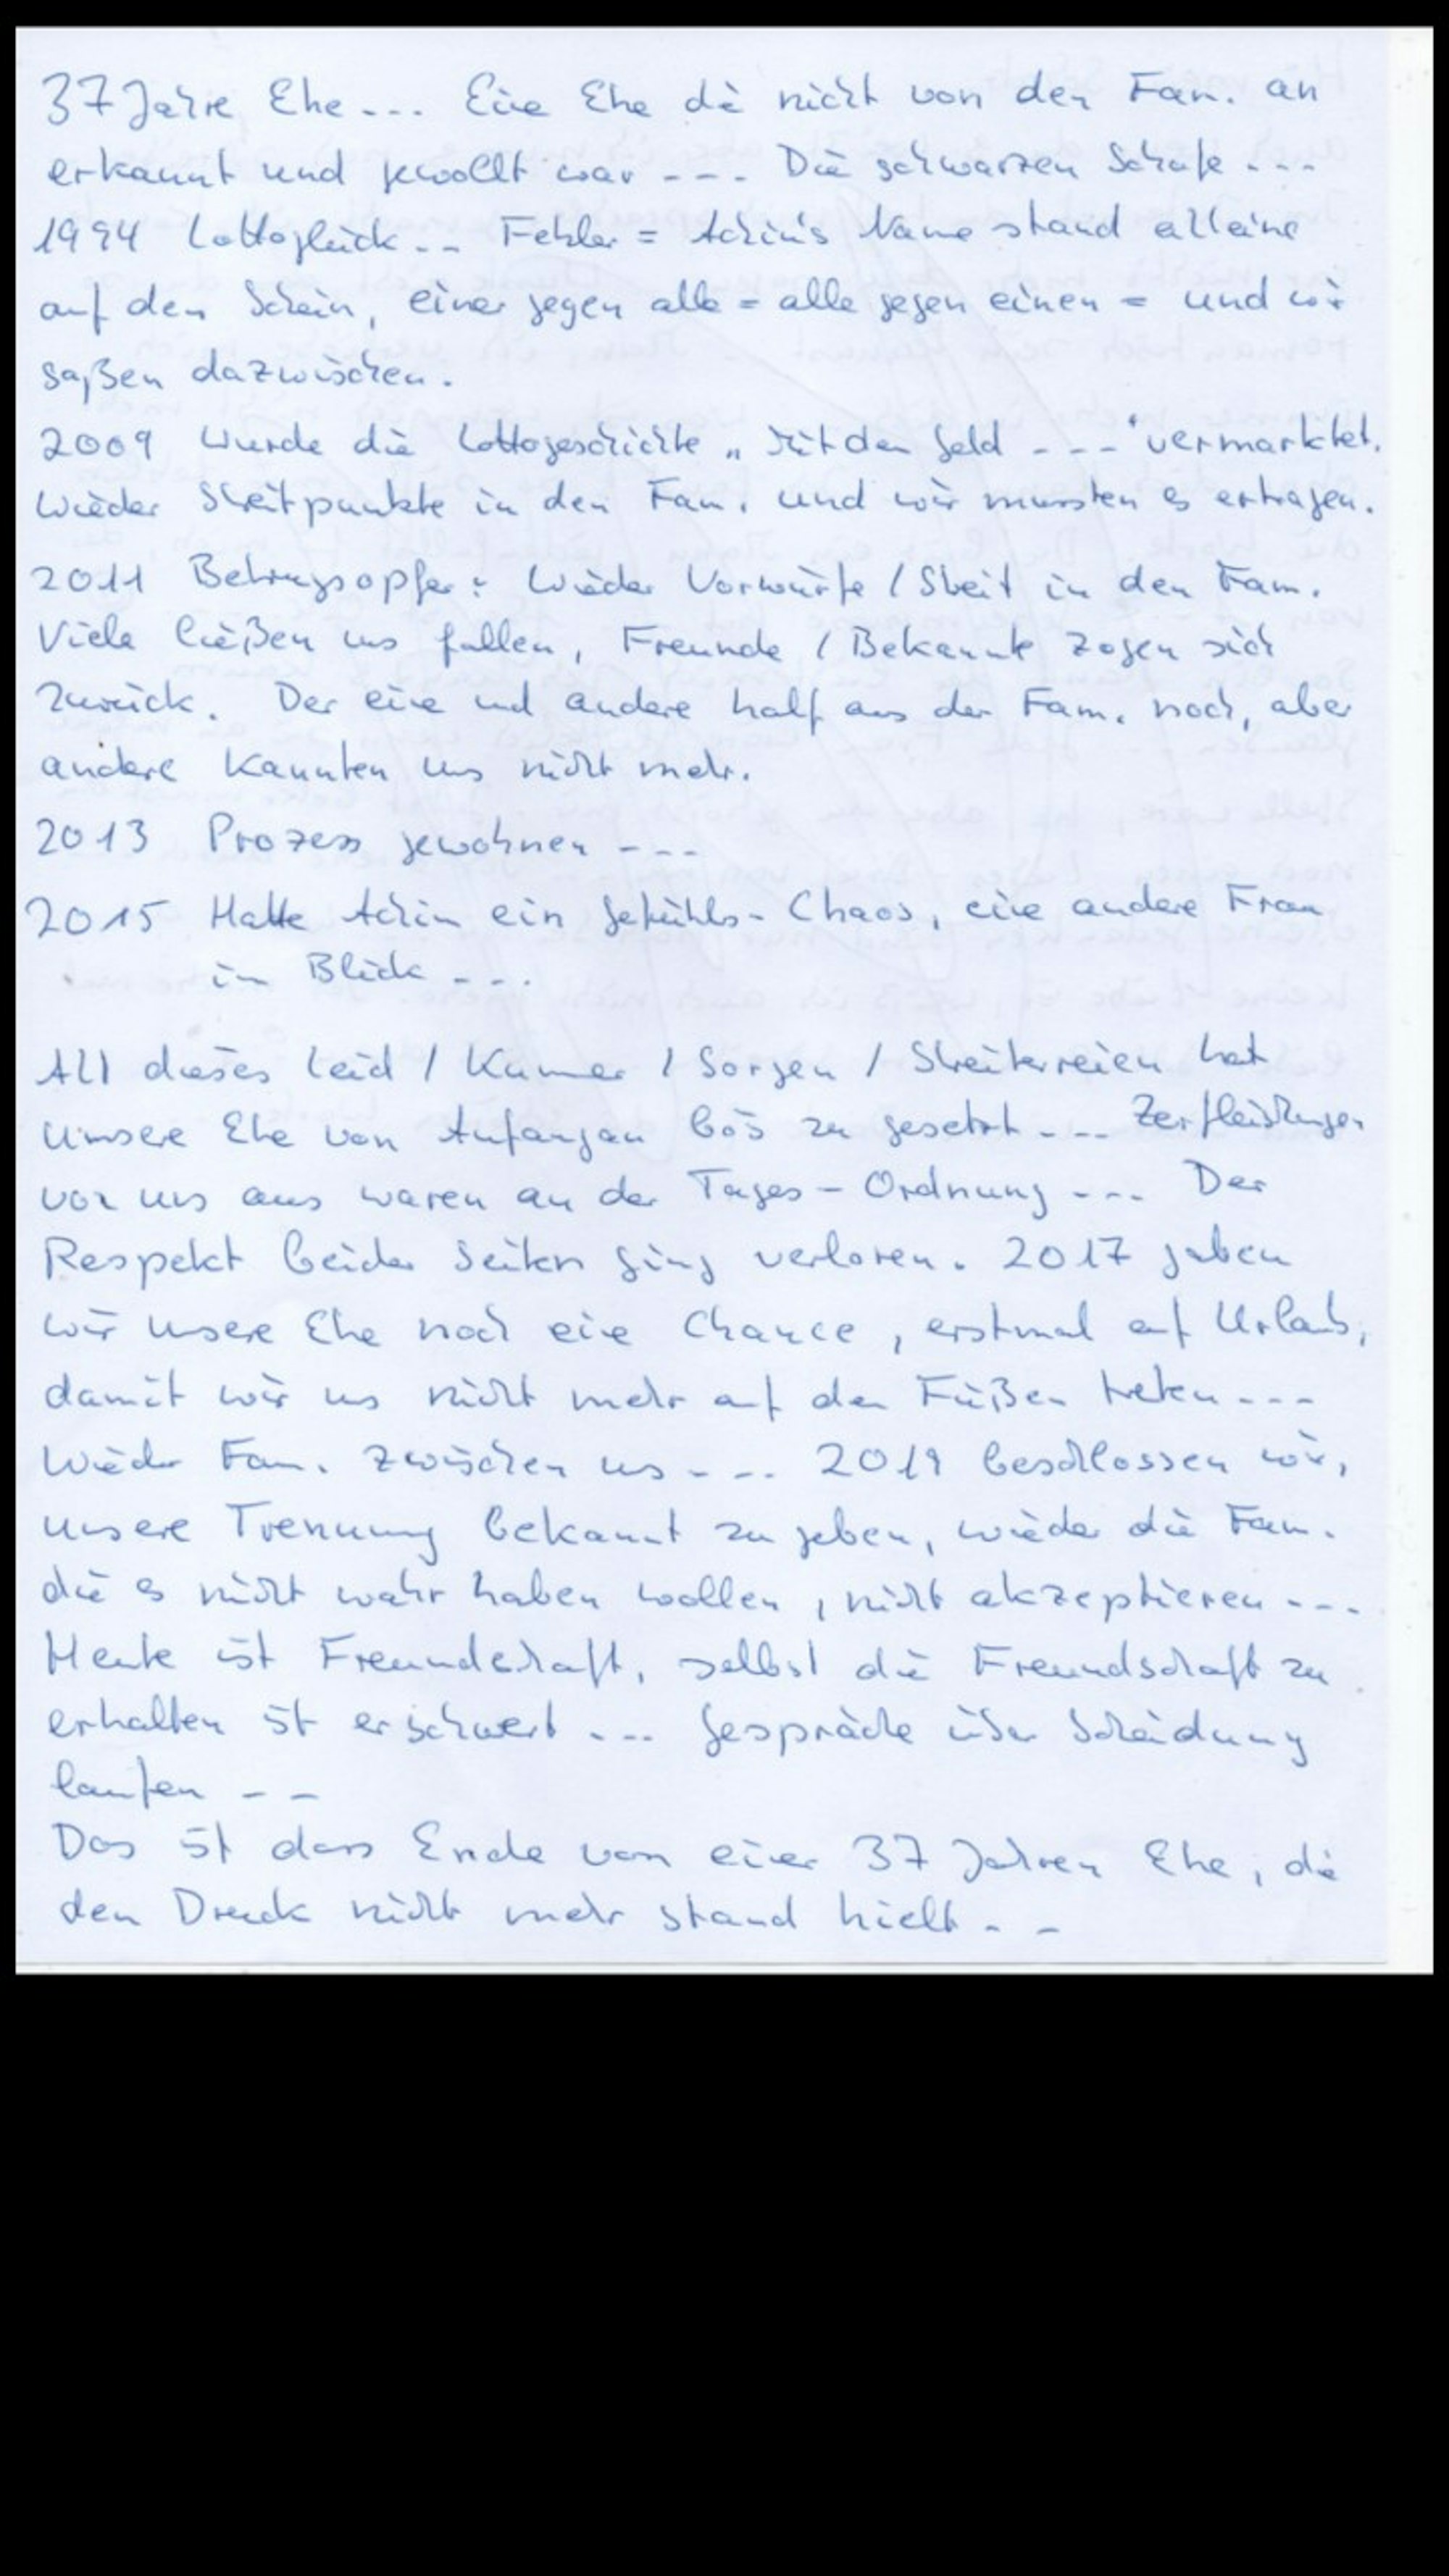 37 Jahre Ehe --- Eine Ehe die nicht von den Fam. an
erkannt und gewollt war --- Die schwarzen Schafe ---
1994 Lottoglück -- Fehler = Achin's Name stand alleine
auf den Schein, einer gegen alle = alle gegen einen = und wir
saßen dazwischen.
2009 wurde die Lottogeschichte „ Mit den Geld --- " vermarktet.
Wieder Streitpunkte in den Fam. und wir mussten es ertragen.
2011 Betrugsopfer: Wieder Vorwürfe / Streit in den Fam.
Viele ließen uns fallen, Freunde / Bekannte zogen sich
zurück. Der eine und andere half aus der Fam. noch, aber
andere kannten uns nicht mehr.
2013 Prozess gewohnen ---
2015 Hatte Achim ein Gefühls- Chaos, eine andere Frau
im Blick ---
All dieses Leid / Kummer / Sorgen / Streitereien hat
unsere Ehe von Anfangan bös zu gesetzt --- Zerfleischungen
von uns aus waren an der Tages - Ordnung --- Der
Respekt beider Seiten ging verloren. 2017 gaben
wir unsere Ehe noch eine Chance, erstmal auf Urlaub,
damit wir uns nicht mehr auf den Füßen treten ---
Wieder Fam. zwischen uns --- 2019 beschlossen wir,
unsere Trennung bekannt zu geben, wieder die Fam.
die es nicht wahr haben wollen, nicht akzeptieren ---
Heute ist Freundschaft, selbst die Freundschaft zu
erhalten ist erschwert --- Gespräche über Scheidung
laufen --
Das ist dass Ende von einer 37 Jahren Ehe, die
den Druck nicht mehr stand hielt --